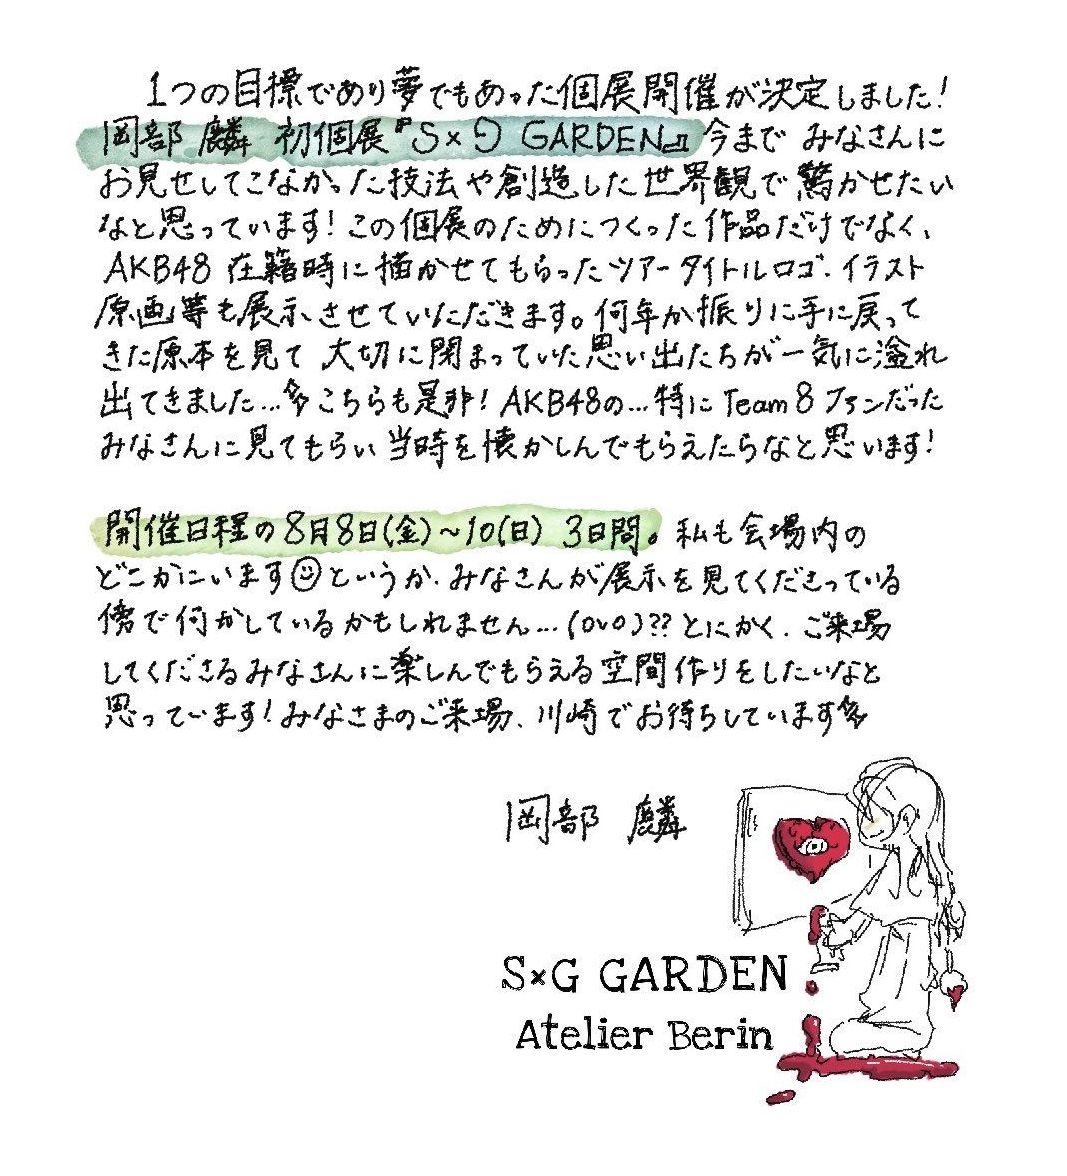 1つの目標であり夢でもあった個展開催が決定しました!
岡部 麟 初個展『S×G GARDEN』今まで みなさんに
お見せしてこなかった技法や創造した世界観で驚かせたい
なと思っています!この個展のためにつくった作品だけでなく、
AKB48 在籍時に描かせてもらったツアータイトルロゴ、イラスト
原画等も展示させていただきます。何年か振りに手に戻って
きた原本を見て 大切に閉まっていた思い出たちが一気に溢れ
出てきました…こちらも是非!AKB48の…特にTeam8ファンだった
みなさんに見てもらい当時を懐かしんでもらえたらなと思います!
開催日程の8月8日(金)~10(日) 3日間。私も会場内の
どこかにいます☺というか、みなさんが展示を見てくださっている
傍で何かしているかもしれません…(OvO)?? とにかく、ご来場
してくださるみなさんに楽しんでもらえる空間作りをしたいなと
思っています!みなさまのご来場、川崎でお待ちしています
岡部 麟
S×G GARDEN
Atelier Berin